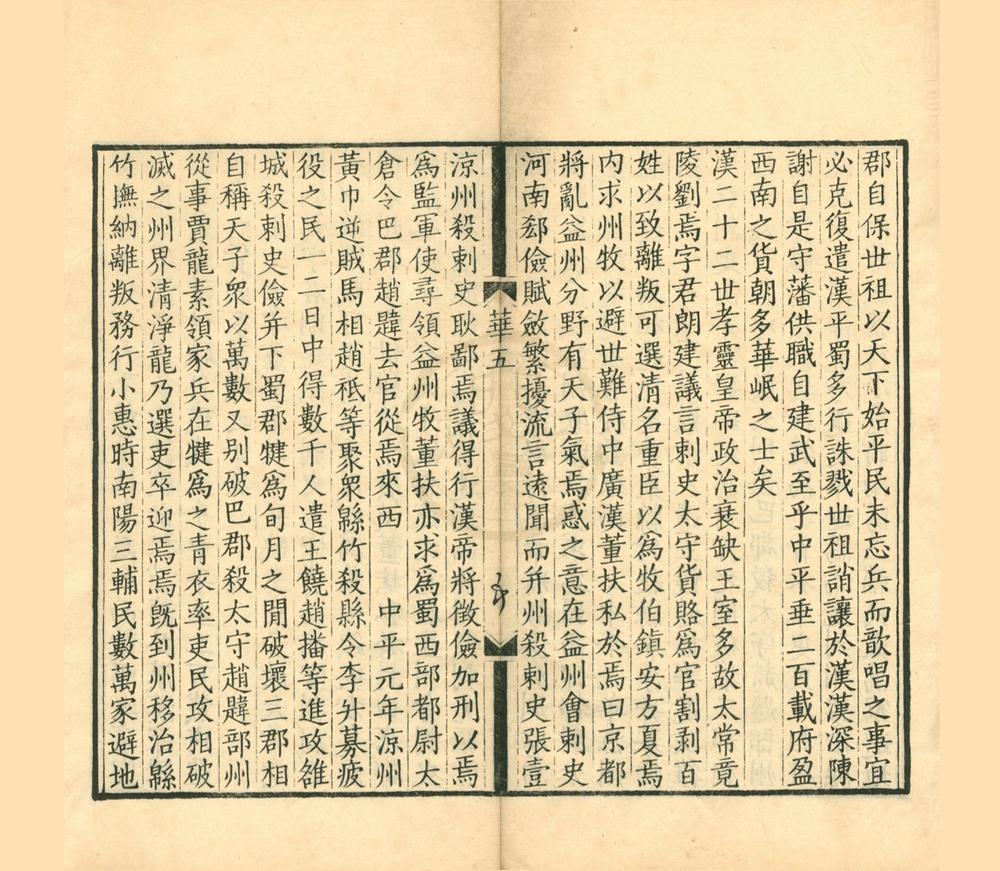 郡自保世祖以天下始平民未忘兵而歆唱之事宜
必克復遣漢平蜀多行誅戮世祖誚讓於漢漢深陳
謝自是守藩供職自建武至乎中平垂二百載府盈
西南之貨朝多華岷之士矣
漢二十二世孝靈皇帝政治衰缺王室多故太常竟
陵劉焉字君朗建議言刺史太守貨賂爲官割剥百
姓以致離叛可選清名重臣以爲牧伯鎮安方夏焉
内求州牧以避世難侍中廣漢董扶私於焉曰京都
將亂益州分野有天子氣焉惑之意在益州會刺史
河南郄儉賦斂繁擾流言遠聞而并州殺刺史張壹
華五
涼州殺刺史耿鄙焉議得行漢帝將徵儉加刑以焉
爲監軍使尋領益州牧董扶亦求爲蜀西部都尉太
倉令巴郡趙韙去官從焉來西 中平元年涼州
黃巾逆賊馬相趙祗等聚衆緜竹殺縣令李升募疲
役之民一二日中得數千人遣王饒趙播等進攻雒
城殺刺史儉并下蜀郡犍爲旬月之閒破壞三郡相
自稱天子衆以萬數又别破巴郡殺太守趙韙部州
從事賈龍素領家兵在犍爲之青衣率吏民攻相破
滅之州界清淨龍乃選吏卒迎焉焉旣到州移治緜
竹撫納離叛務行小惠時南陽三輔民數萬家避地